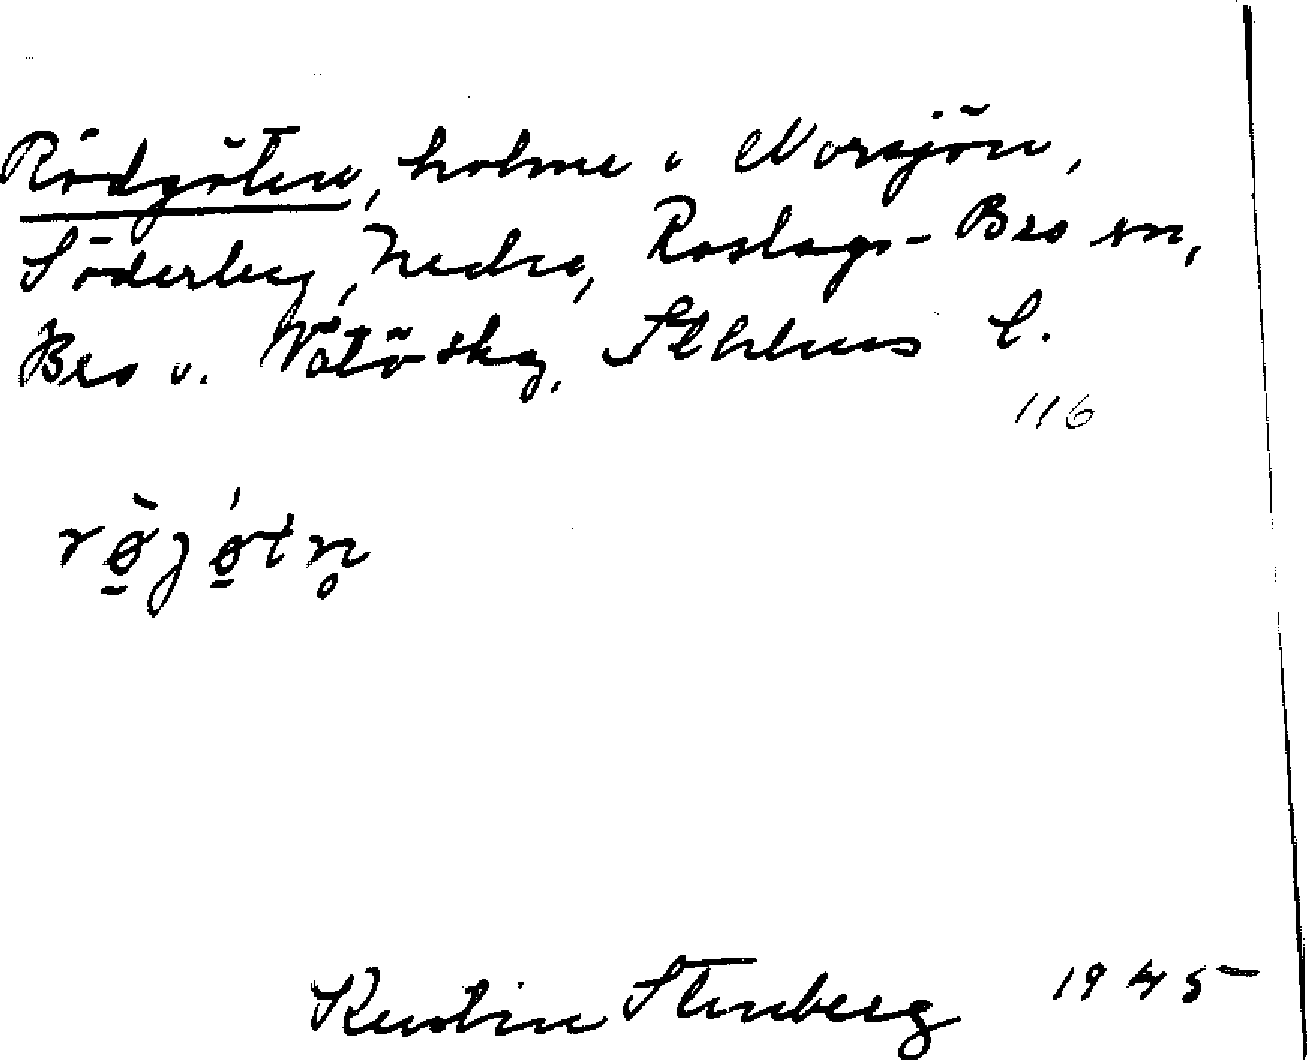 Rödgöten, holme i Norsjön,
Söderby, Nedre, Roslags-Bro sn,
Bro o. Vätö skg, Sthlms l.
116
rø̀jǿtn̥
Kerstin Stenberg 1945